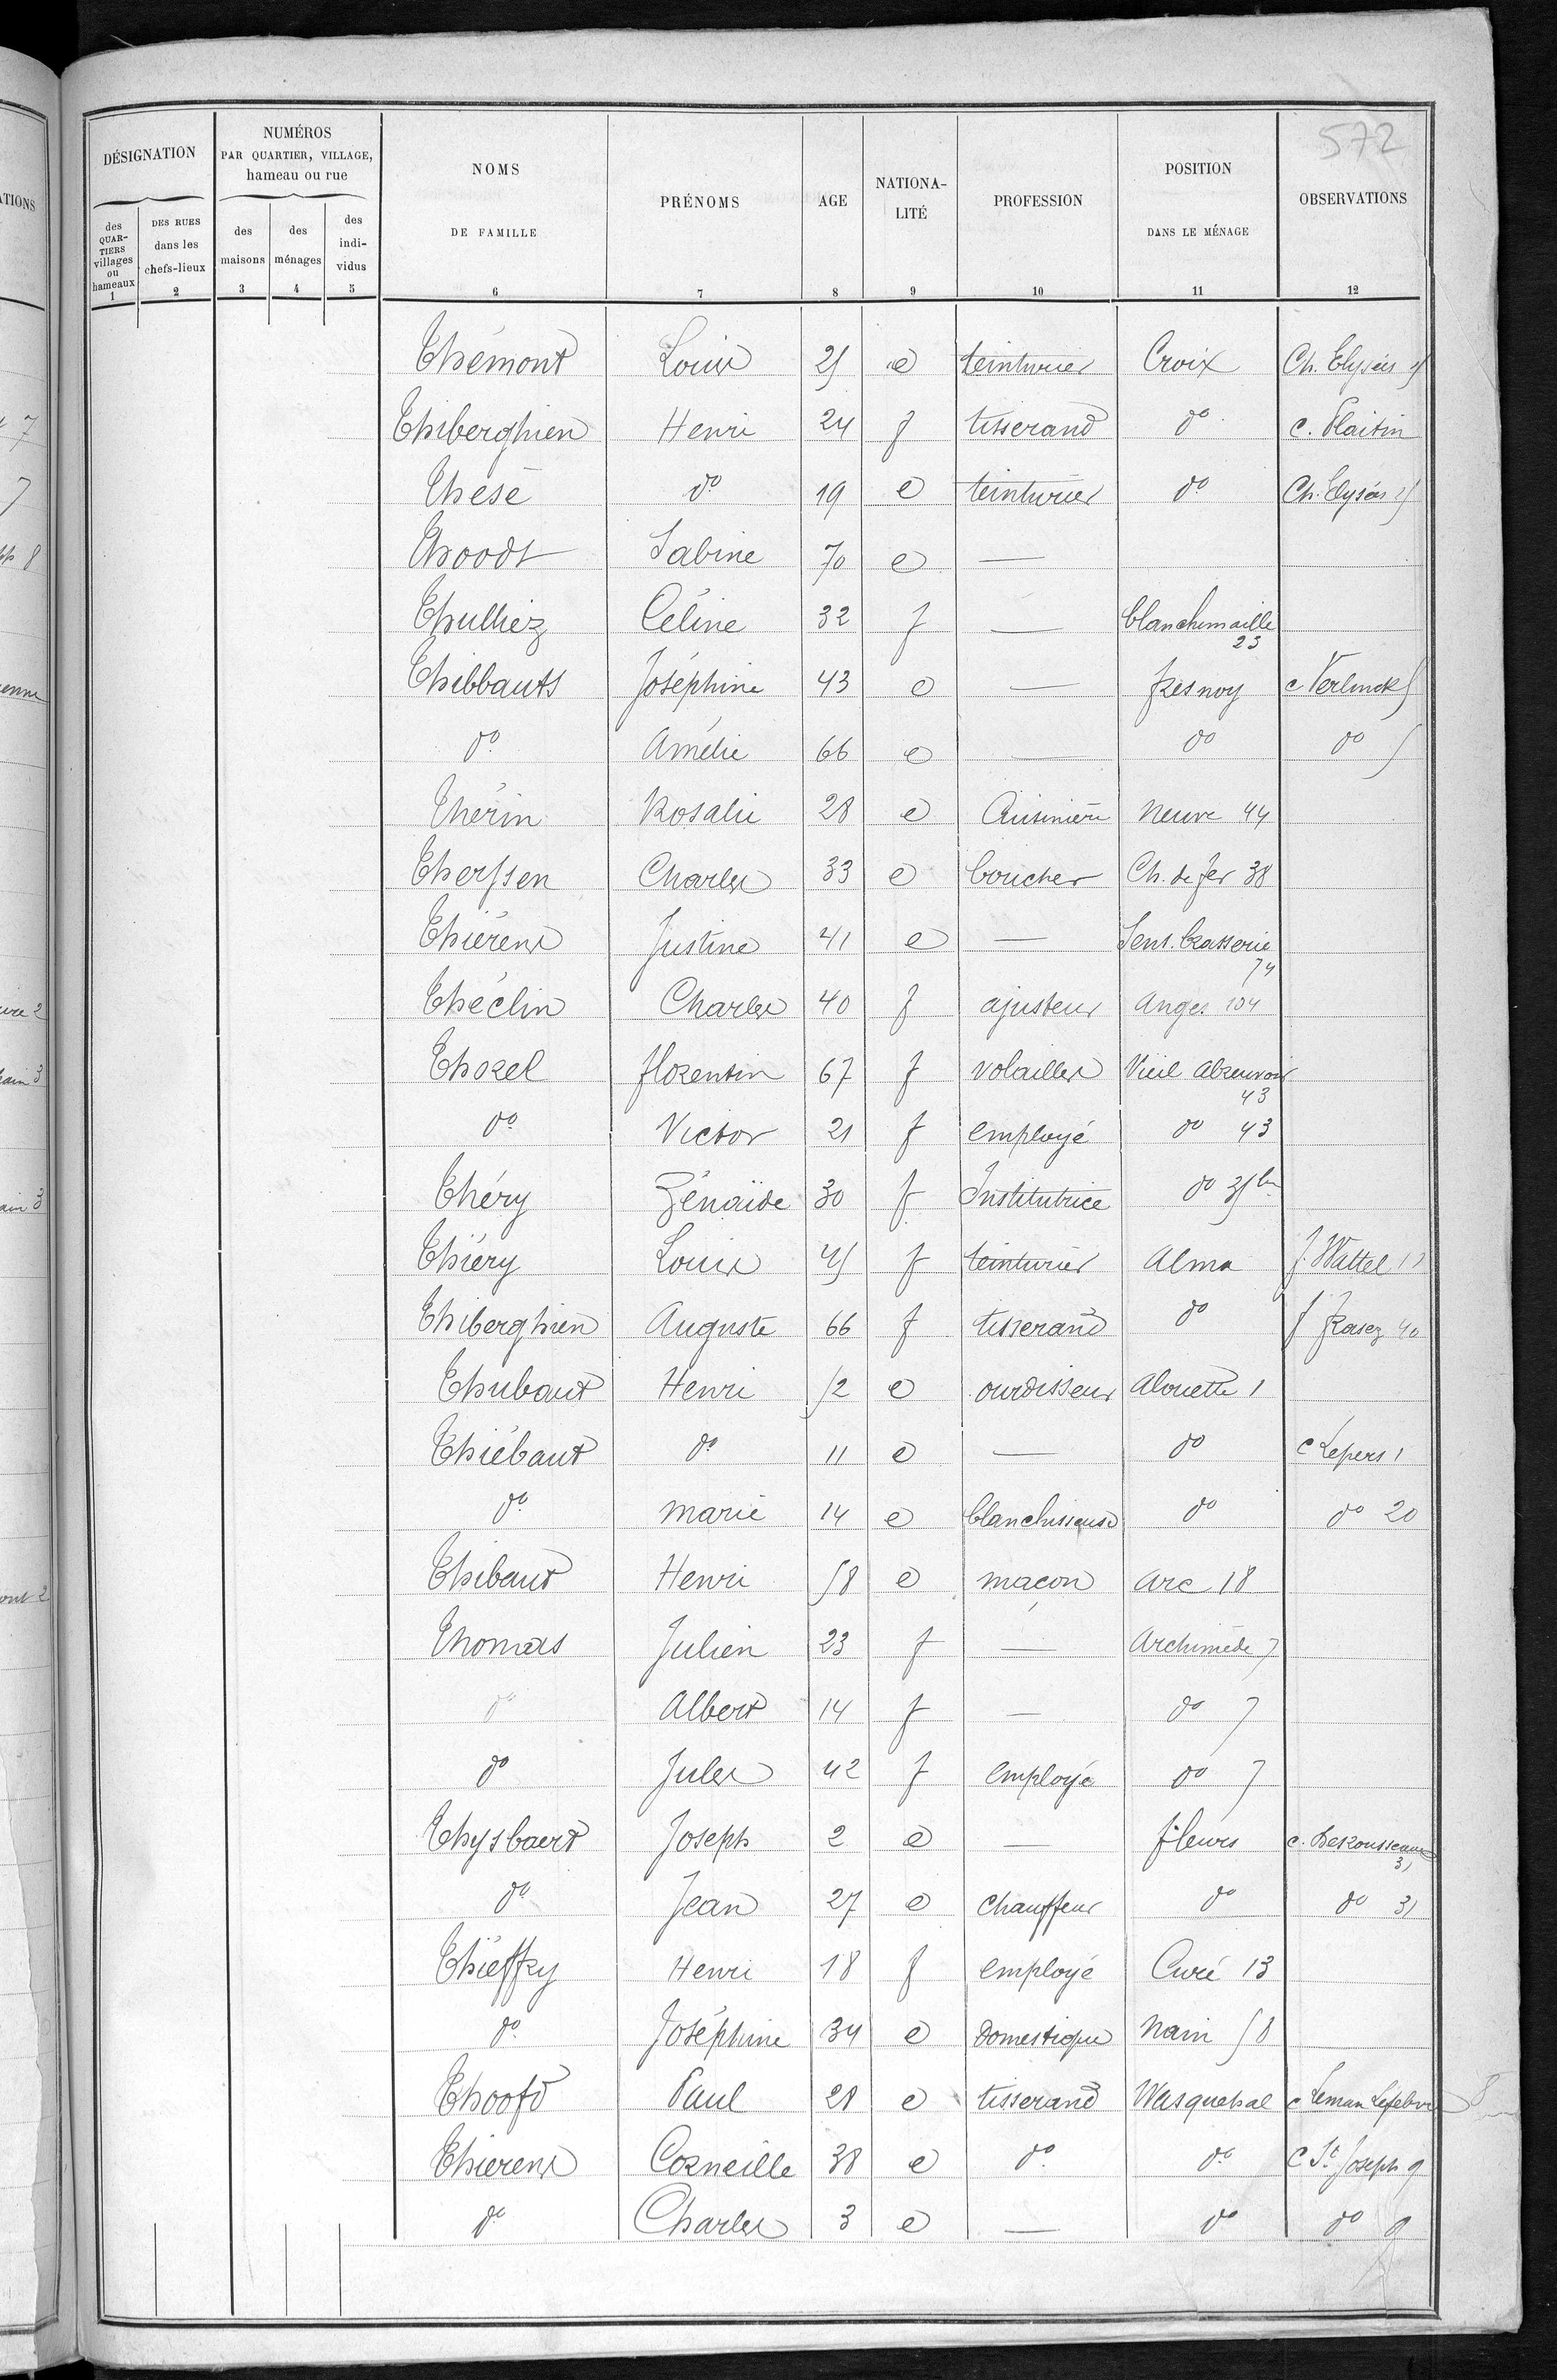 572
DÉSIGNATION
NUMÉROS
PAR QUARTIER, VILLAGE,
hameau ou rue
NOMS
DE FAMILLE
PRÉNOMS
AGE
NATIONA-
LITÉ
PROFESSION
POSITION
DANS LE MÉNAGE
OBSERVATIONS
des
QUAR-
TIERS
villages
ou
hameaux
DES RUES
dans les
chefs-lieux
des
maisons
des
ménages
des
indi-
vidus
1 2 3 4 5 6 7 8 9 10 11 12
Thémont Louis 25 e teinturier Croix Ch. Elysées 5
Thiberghien Henri 24 f tisserand do c. Flaitin
Thésé do 19 e teinturier do Ch. Elysées 25
Thoodt Sabine 70 e —
Thulliez Céline 32 f — blanchemaille
23
Thibbauts Joséphine 43 e — fresnoy c Verlinck 5
do Amélie 66 e — do do 5
Thérin Rosalie 28 e Cuisinière Neuve 44
Therssen Charles 33 e boucher Ch. de fer 38
Thiérens Justine 41 e — Sent. brasserie
74
Théclin Charles 40 f ajusteur Anges 104
Thorel florentin 67 f volailler Vieil Abreuvoir
43
do Victor 21 f employé do 43
Théry Zénaïde 30 f Institutrice do 35 bis
Thiéry Louis 45 f teinturier Alma f. Wattel 17
Thiberghien Auguste 66 f tisserand do f frasez 40
Thubaut Henri 52 e ourdisseur Alouette 1
Thiébaut do 11 e — do c Lepers 1
do Marie 14 e blanchisseuse do do 20
Thibaut Henri 58 e maçon Arc 18
Thomas Julien 23 f — Archimède 7
do Albert 14 f — do 7
do Jules 42 f employé do 7
Thysbaert Joseph 2 e — fleurs c. Desrousseaux
31
do Jean 27 e chauffeur do do 31
Thieffry Henri 18 f employé Curé 13
do Joséphine 34 e Domestique Nain 58
Thoofd Paul 28 e tisserand Wasquehal c Leman Lefebvre 8
Thierens Corneille 38 e do do C St Joseph 9
do Charles 3 e — do do 9